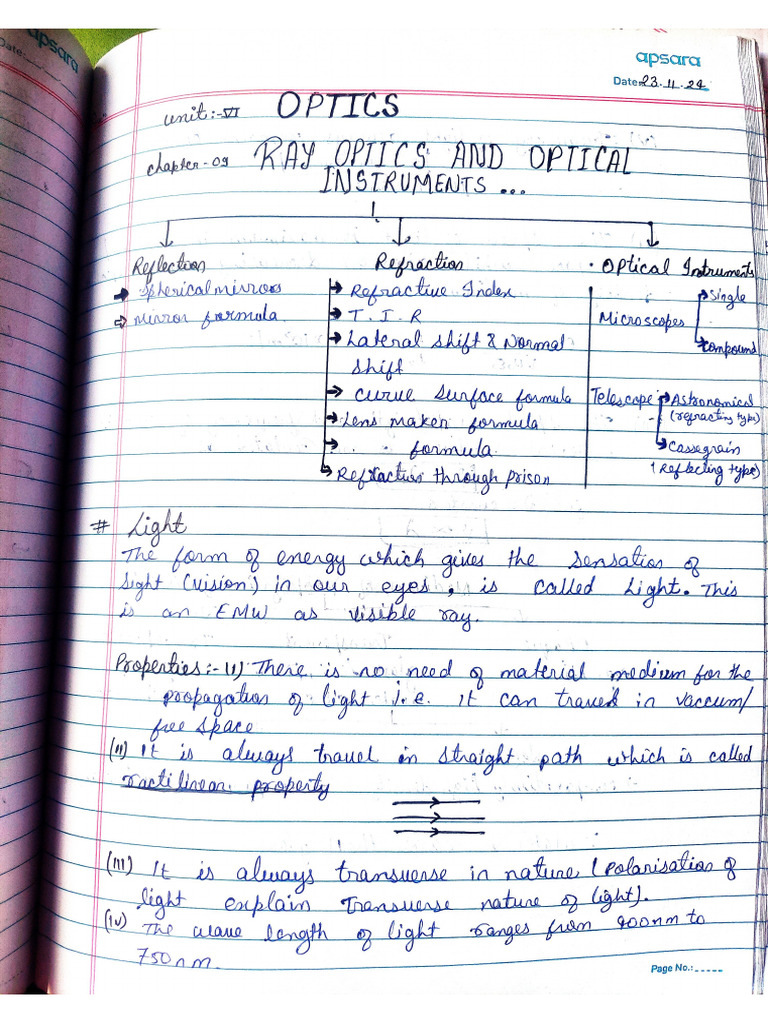 apsara
Date:
apsara
Date: 23.11.24
unit:-VI OPTICS
chapter-09 RAY OPTICS AND OPTICAL
INSTRUMENTS ...
Reflection
Spherical mirros
mirror formula.
Refraction
Refractive Index
T.I.R
Lateral shift & Normal
shift
curve surface formula
Lens maker formula
formula
Refraction through prism
Optical Instruments
Microscopes
Single
compound
Telescope
Astronomical
(refracting type)
Cassegrain
(Reflecting type)
# Light
The form of energy which gives the sensation of
sight (vision) in our eyes, is called Light. This
is an EMW as visible ray.
Properties:- (i) There is no need of material medium for the
propagation of light i.e. it can travel in vaccum/
free space
(ii) It is always travel in straight path which is called
ractilinear property
(iii) It is always transverse in nature (polarisation of
light explain transverse nature of light).
(iv) The wave length of light ranges from 400nm to
750nm.
Page No.: